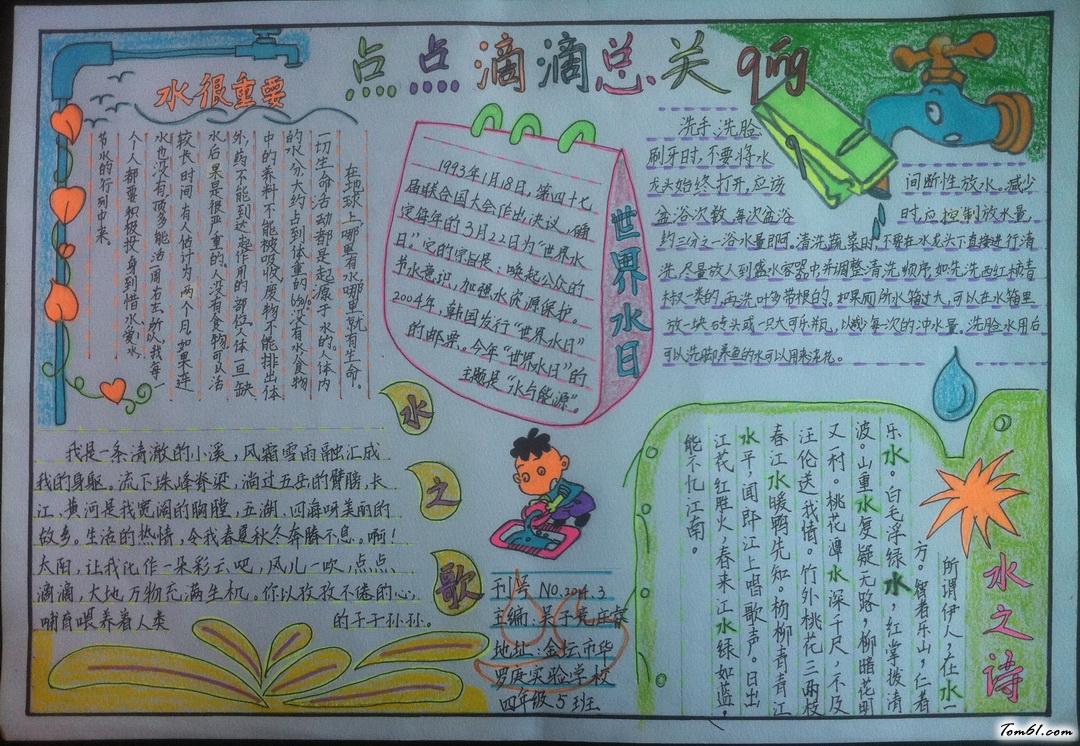 点点滴滴总关qíng
水很重要
在地球上,哪里有水哪里就有生命。
一切生命活动都是起源于水的。人体内
的水分大约占到体重的65%。没有水,食物
中的养料不能被吸收,废物不能排出体
外,药不能到达起作用的部位。人体一旦缺
水后果是很严重的。人没有食物可以活
较长时间,有人估计为两个月,如果连
水也没有,顶多能活一周左右。所以,我每一
个人都要积极投身到惜水、爱水、
节水的行列中来。
1993年1月18日,第四十七
届联合国大会作出决议,确
定每年的3月22日为“世界水
日”。它的宗旨是:唤起公众的
节水意识,加强水资源保护。
2004年,韩国发行“世界水日”
的邮票。今年“世界水日”的
主题是“水与能源”。
世界水日
洗手、洗脸、
刷牙时,不要将水
龙头始终打开,应该
间断性放水。减少
盆浴次数,每次盆浴
时,应控制放水量,
约三分之一浴水量即可。清洗蔬菜时,不要在水龙头下直接进行清
洗,尽量放入到盛水容器中并调整清洗顺序,如先洗西红柿青
椒一类的,再洗叶多带根的。如果厕所水箱过大,可以在水箱里
放一块砖头或一只大可乐瓶,以减每次的冲水量。洗脸水用后
可以洗脚养鱼的水可以用来浇花。
水之歌
我是一条清澈的小溪,风霜雪雨融汇成
我的身躯。流下珠峰脊梁,淌过五岳的臂膀,长
江、黄河是我宽阔的胸膛,五湖、四海呀美丽的
故乡。生活的热情,令我春夏秋冬奔腾不息。啊!
太阳,让我化作一朵彩云吧,风儿一吹,点点
滴滴,大地万物充满生机。你以孜孜不倦的心,
哺育喂养着人类
的子子孙孙。
刊号 NO.2014.3
主编:吴子亮
地址:金坛市华
罗庚实验学校
四年级5班
水之诗
所谓伊人,在水一
方。智者乐山,仁者
乐水。白毛浮绿水,红掌拨清
波。山重水复疑无路,柳暗花明
又一村。桃花潭水深千尺,不及
汪伦送我情。竹外桃花三两枝
春江水暖鸭先知。杨柳青青江
水平,闻郎江上唱歌声。日出
江花红胜火,春来江水绿如蓝,
能不忆江南。
Tom61.com